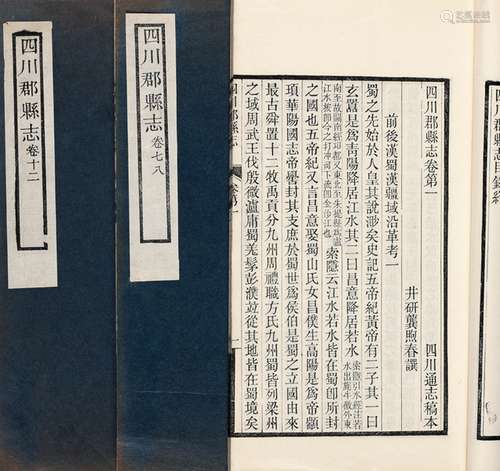 四川郡縣志 卷十二
四川郡縣志 卷七八
四川郡縣志卷第一 四川通志稿本
井研龔煦春譔
前後漢蜀漢疆域沿革考一
蜀之先始於人皇其說渺矣史記五帝紀黃帝有二子其一曰
玄囂是爲靑陽降居江水其二曰昌意降居若水
江水皆在蜀卽所封
之國也五帝紀又言昌意娶蜀山氏女昌僕生高陽是爲帝顓
頊華陽國志帝嚳封其支庶於蜀世爲侯伯是蜀之立國由來
最古舜置十二牧禹貢分九州周禮職方氏九州蜀皆列梁州
之域周武王伐殷微瀘庸蜀羌髳彭濮竝從其地皆在蜀境矣
四川郡縣志 卷第一 一
四川郡縣志目錄